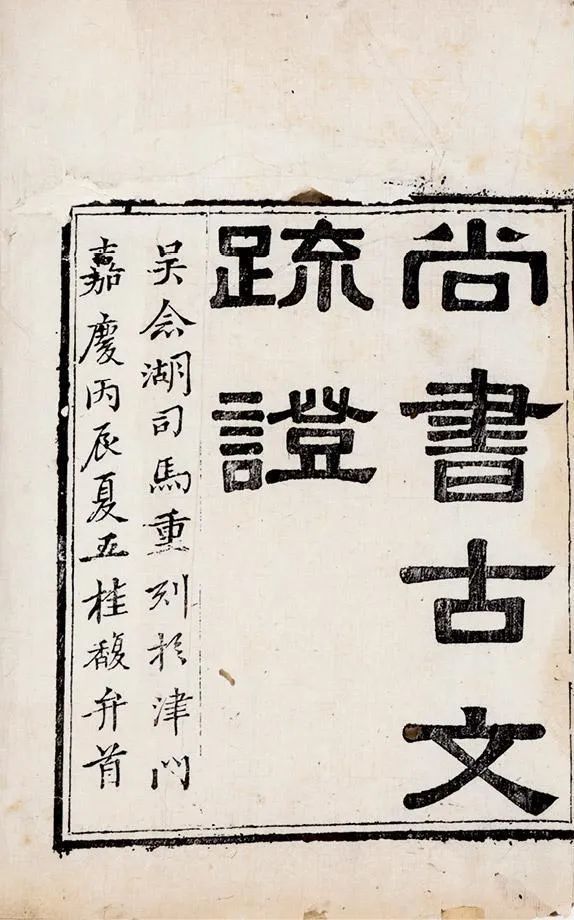 尚書古文
疏證
吳念湖司馬重刻於津門
嘉慶丙辰夏五桂馥弁首